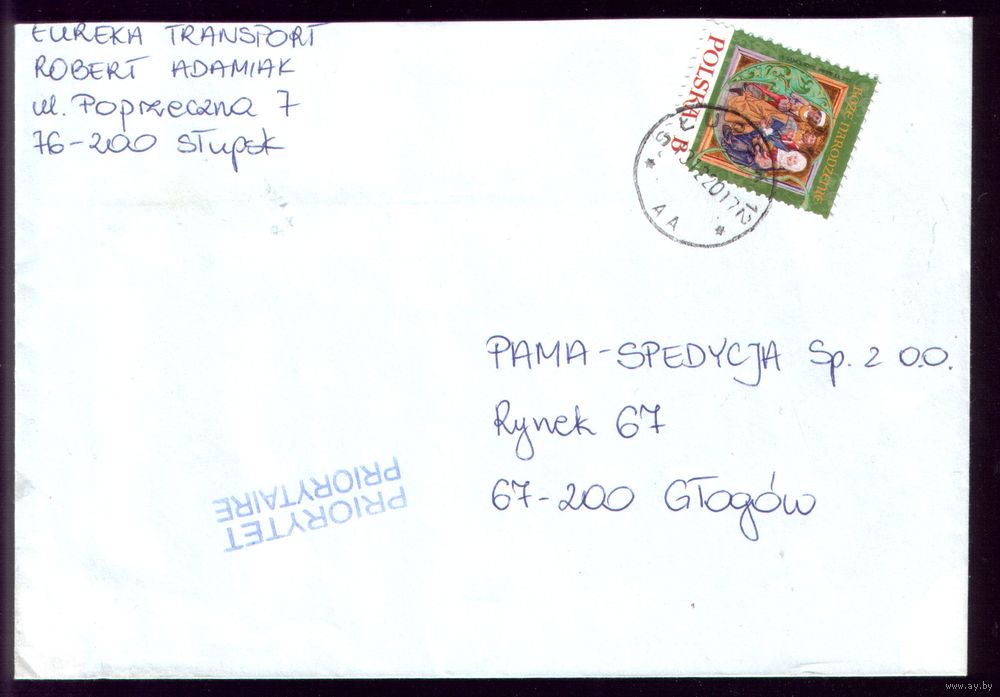 EUREKA TRANSPORT
ROBERT ADAMIAK
ul. Poprzeczna 7
76-200 Słupsk
POLSKA B
BOŻE NARODZENIE
AA
PAMA-SPEDYCJA Sp. z o.o.
Rynek 67
67-200 Głogów
PRIORYTET
PRIORYTAIRE
www.ay.by